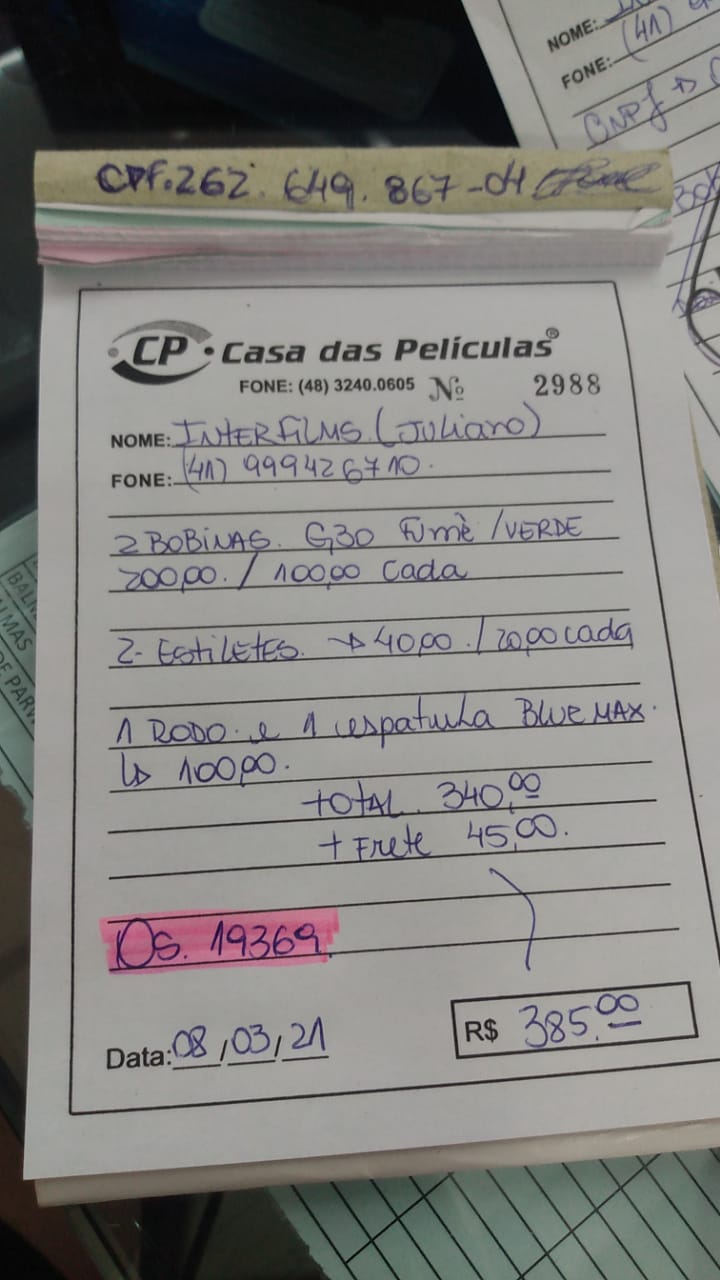 NOME:
FONE: (41)
CNPJ
CPF. 262. 649. 867-04
CP Casa das Películas®
FONE: (48) 3240.0605 Nº 2988
NOME: INTERFILMS (JULIANO)
FONE: (41) 999426710.
2 BOBINAS. G30 Fumê / VERDE
200,00. / 100,00 Cada
2- EStiLETES. → 40,00. / 20,00 cada
1 RODO. e 1 espatula BLUE MAX.
↳ 100,00.
tOtAL. 340,00
+ Frete 45,00.
Os. 19369
Data: 08/03/21 R$ 385,00